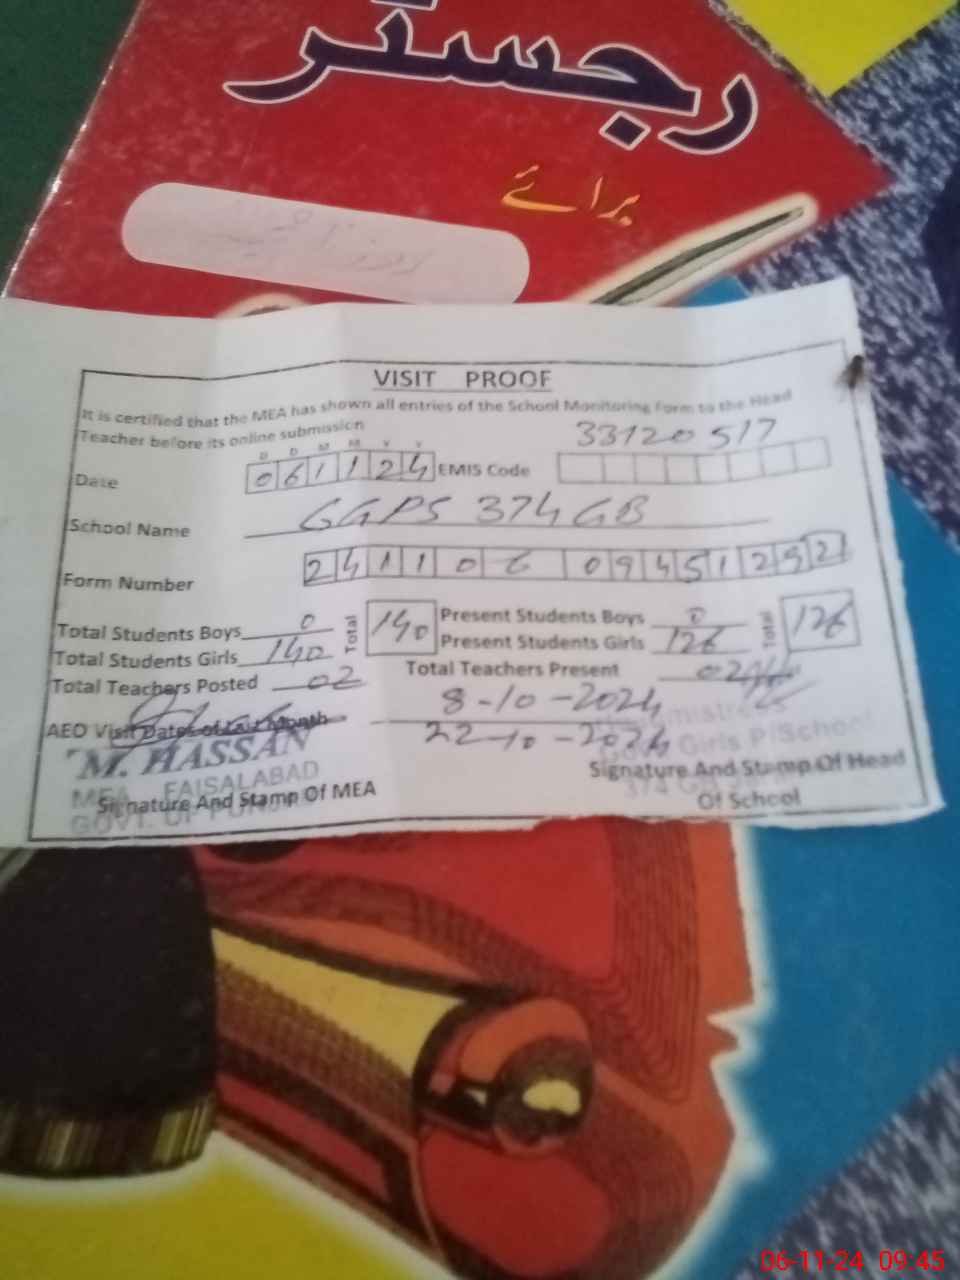 رجسٹر
برائے
VISIT PROOF
It is certified that the MEA has shown all entries of the School Monitoring Form to the Head
Teacher before its online submission
33120517
D D M M Y Y
Date 061124 EMIS Code
School Name GGPS 374 GB
Form Number 241106 09451292
Total Students Boys 0 Total 140 Present Students Boys 0 Total 126
Total Students Girls 140 Present Students Girls 126
Total Teachers Posted 02 Total Teachers Present 02
AEO Visit Dates of Last Month 8-10-2024
22-10-2024
M. HASSAN
MEA FAISALABAD
GOVT. OF
Girls P/School
374
Signature And Stamp Of MEA
Signature And Stamp Of Head
Of School
06-11-24 09:45